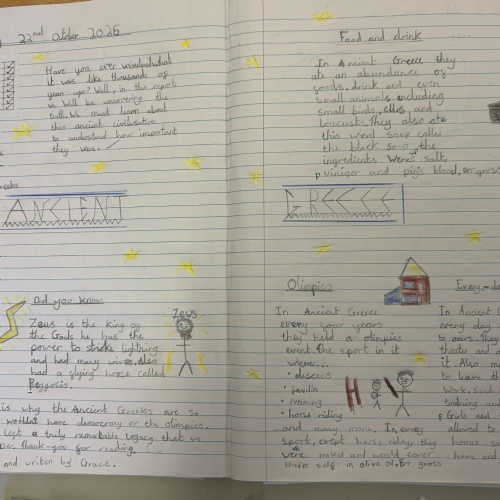 22nd October 2025
Have you ever wondered what
it was like thousands of
years ago? Well, in this report
we will be uncovering the
truth. We must learn about
this ancient civilisation
to understand how important
they were.
ANCIENT
Did you know
Zeus is the king of
the Gods he has the
power to stroke lightning
and had many wives. Also
had a flying horse called
Peggesis.
Zeus
is why the Ancient Greeks are so
wouldnt have democracy or the olimpics.
left a truly remarkable legacy that we
Thank-you for reading.
and written by Grace.
Food and drink
In Ancient Greece they
ate an abundance of
foods, drink and even
small animals including
small birds, and
They also ate
this weird soup called
the black soup the
ingredients were salt,
vinigar and pig's blood, err gross
GREECE
Olimpics
In Ancient Greece
every four years
they held a olimpics
event. The sport in it
were...
• discus
• javilin
• running
• horse riding
...and many more. In every
sport, except horse riding, they
were naked and would cover
their selfs in olive oil. Err gross
In Ancient
every day
theater and
it. Also
to leave
work. Such
and
Girls
allowed to
home and